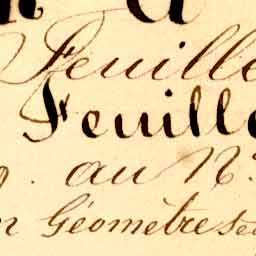 Feuille
Feuille
au N°
Géomètre